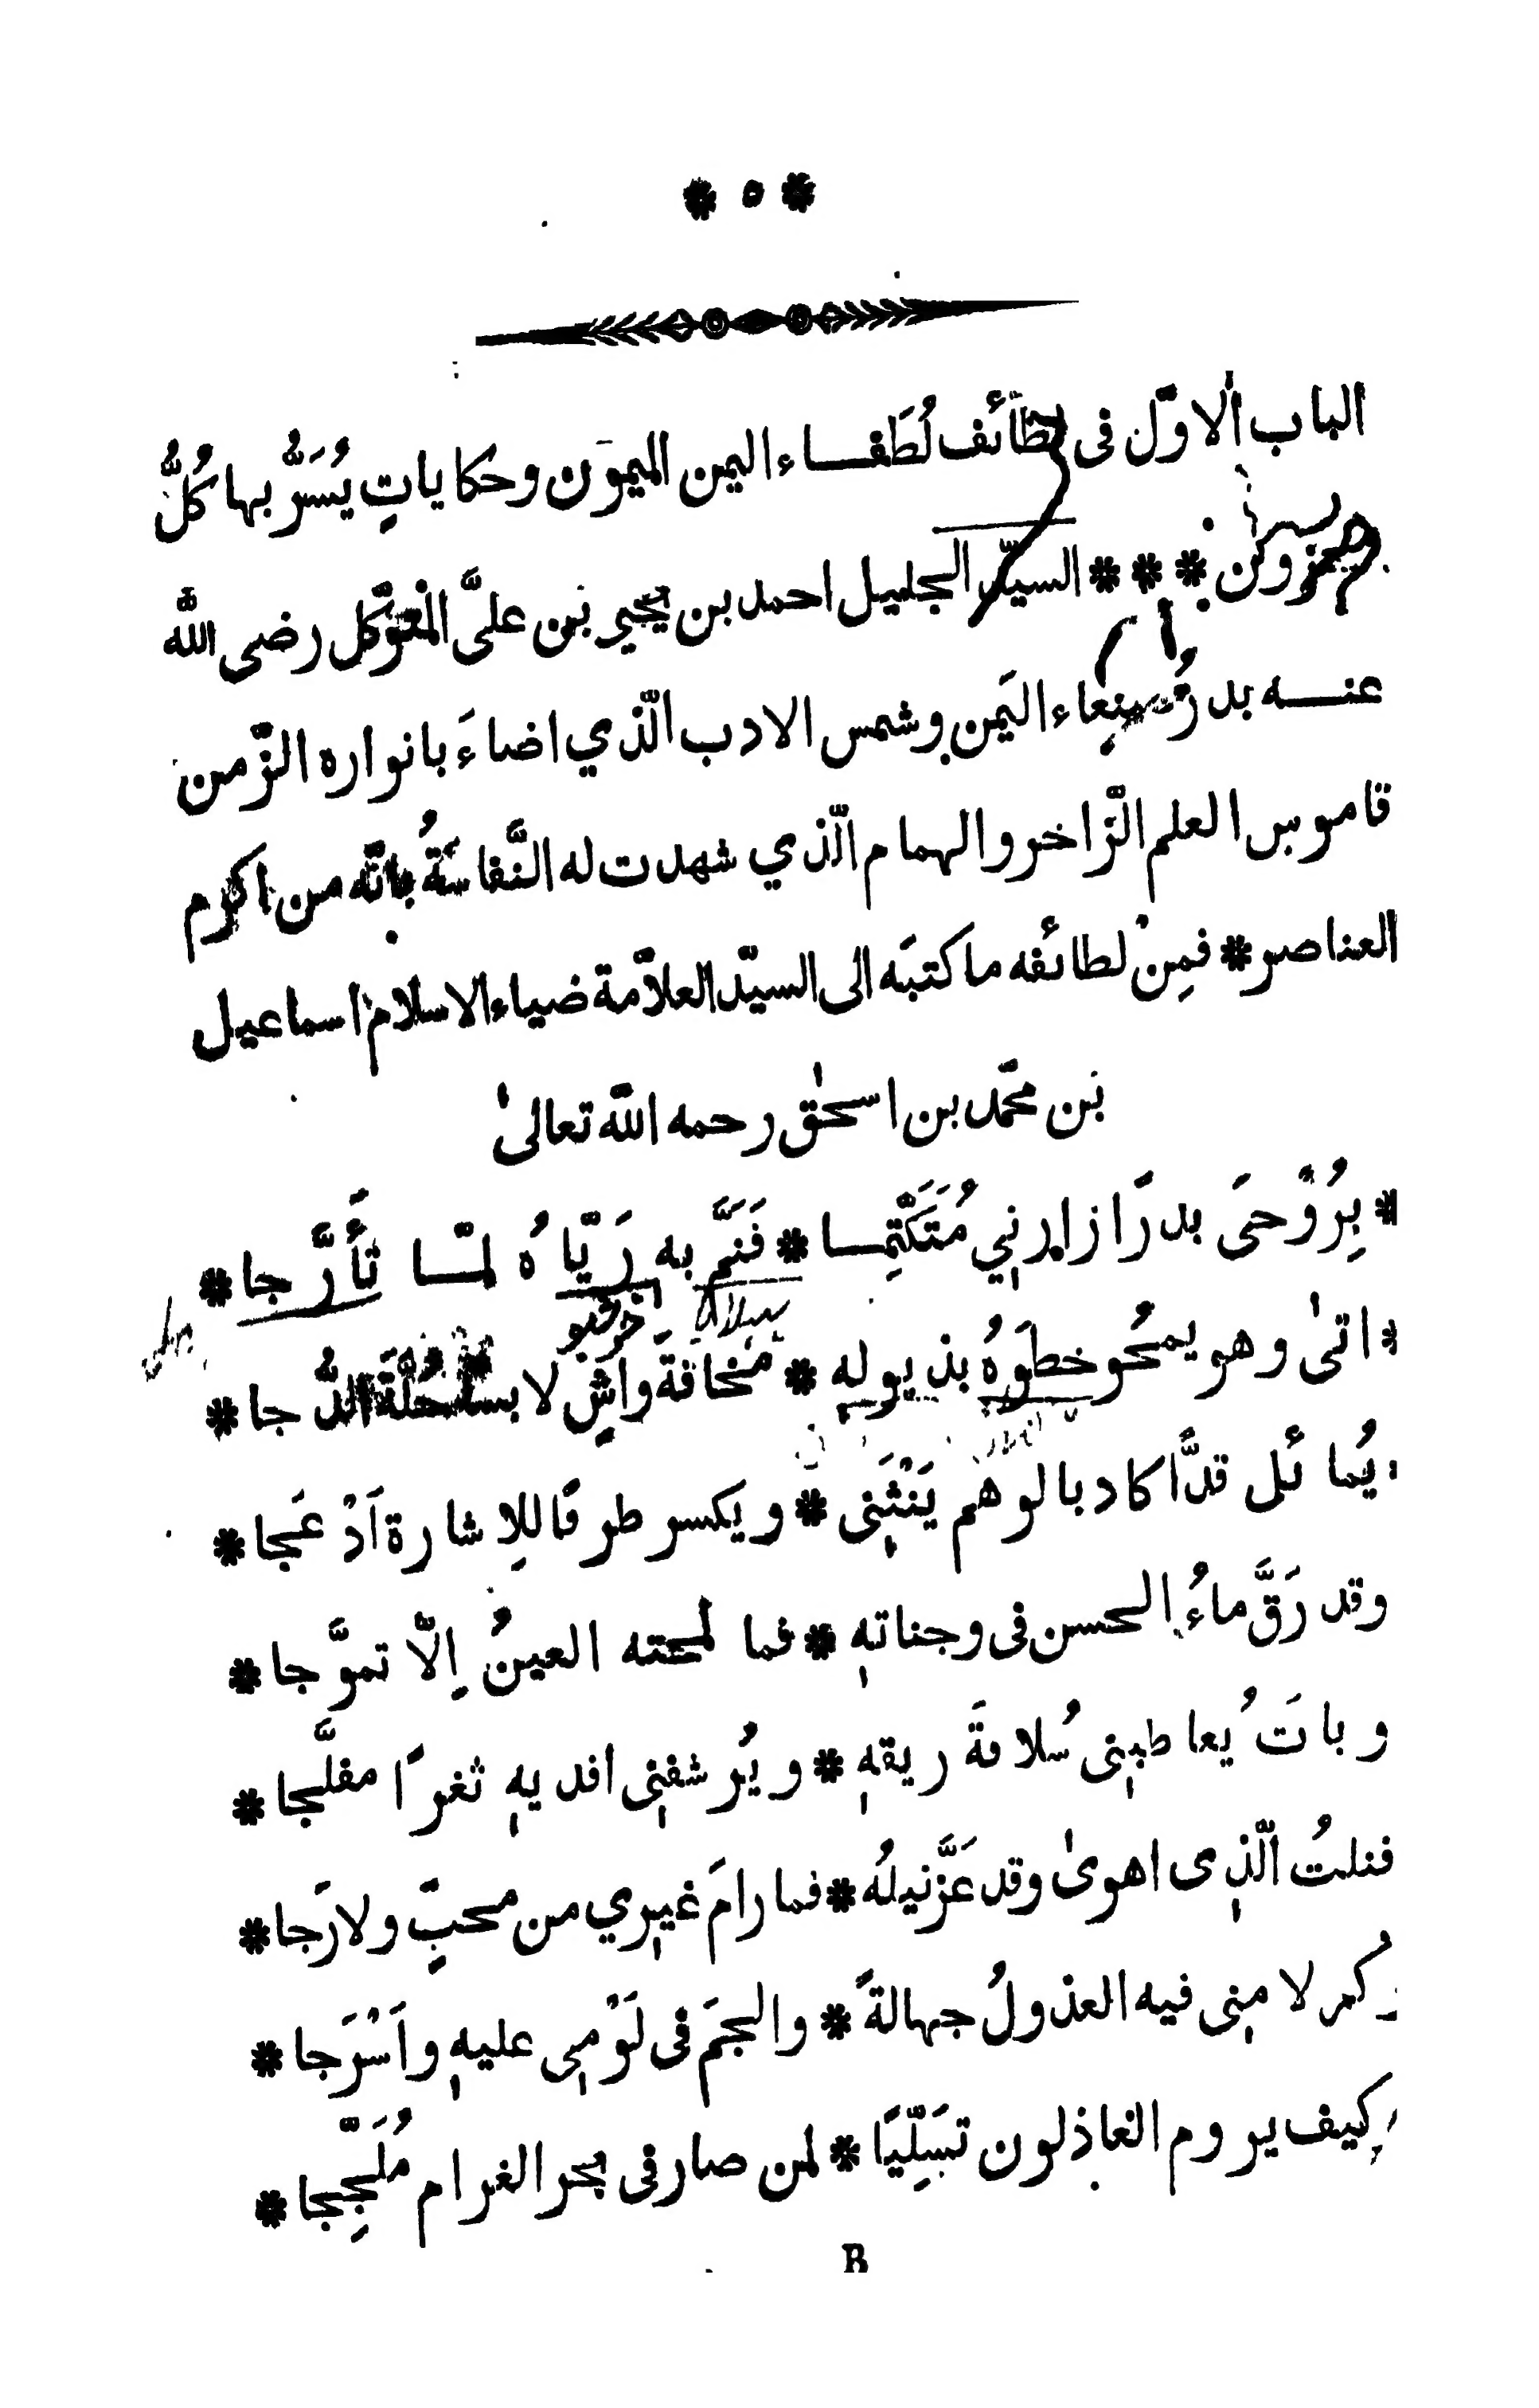 * ٥ *
الباب الاوّل فى لطائف لُطَفاء اليمن الميمون وحكاياتٍ يُسَرُّ بها كُلُّ
محزون * * * السيّد الجليل احمد بن يحيى بن علىَّ المتوكّل رضى اللّٰه
عنه بدرُ صنعاء اليَمن وشمس الادب الّذي اضاءَ بانواره الزّمن
قاموس العلم الزّاخر والهمام الّذي شهدت له النَّفاسَةُ بانّه من اكرم
العناصر * فمِنْ لطائفه ما كتبَه الى السيّد العلاّمة ضياء الاسلام اسماعيل
بن محمّد بن اسحٰق رحمه اللّه تعالىٰ
* بِرُوْحىَ بدرًا زارنِي مُتَكَتِّمًا * فَنَمَّ به رَيّاهُ لمّا تَأَرَّجا *
* اتىٰ وهو يمحُو خطوَهُ بذيولهِ * مخافةَ واشٍ لابسا حُلّةَ الدُّجا *
يُمائل قدًّا كاد بالوهم يَنْثَنِى * ويكسر طرفًا للاِشارة اَدْعَجا *
وقد رَقَّ ماءُ الحسن فى وجناتهِ * فما لمحته العينُ اِلّا تموَّجا *
وباتَ يُعاطينِى سُلافةَ ريقهِ * ويُرشفنِى افديهِ ثغرًا مفلَّجا *
فنلتُ الّذِى اهوىٰ وقد عَزَّ نيلُه * فما رامَ غيرِي من محبٍّ ولا رَجا *
وكم لامنِى فيه العذولُ جهالةً * والجمَ فى لَوْمِى عليهِ واَسْرَجا *
وكيف يروم العاذلون تسَلِّيًا * لمن صار فى بحر الغرام مُلَجِّجا *
B